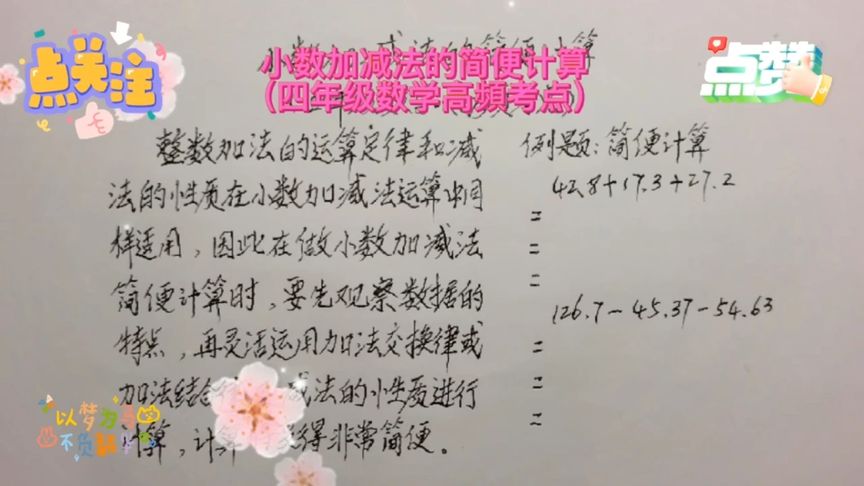 点关注
点赞
小数加减法的简便计算
(四年级数学高頻考点)
整数加法的运算定律和减
法的性质在小数加减法运算中同
样适用，因此在做小数加减法
简便计算时，要先观察数据的
特点，再灵活运用加法交换律或
加法结合 减法的性质进行
计算，计 得非常简便。
例题：简便计算
42.8+17.3+27.2
=
=
=
126.7-45.37-54.63
=
=
=
以梦为马
不负韶华